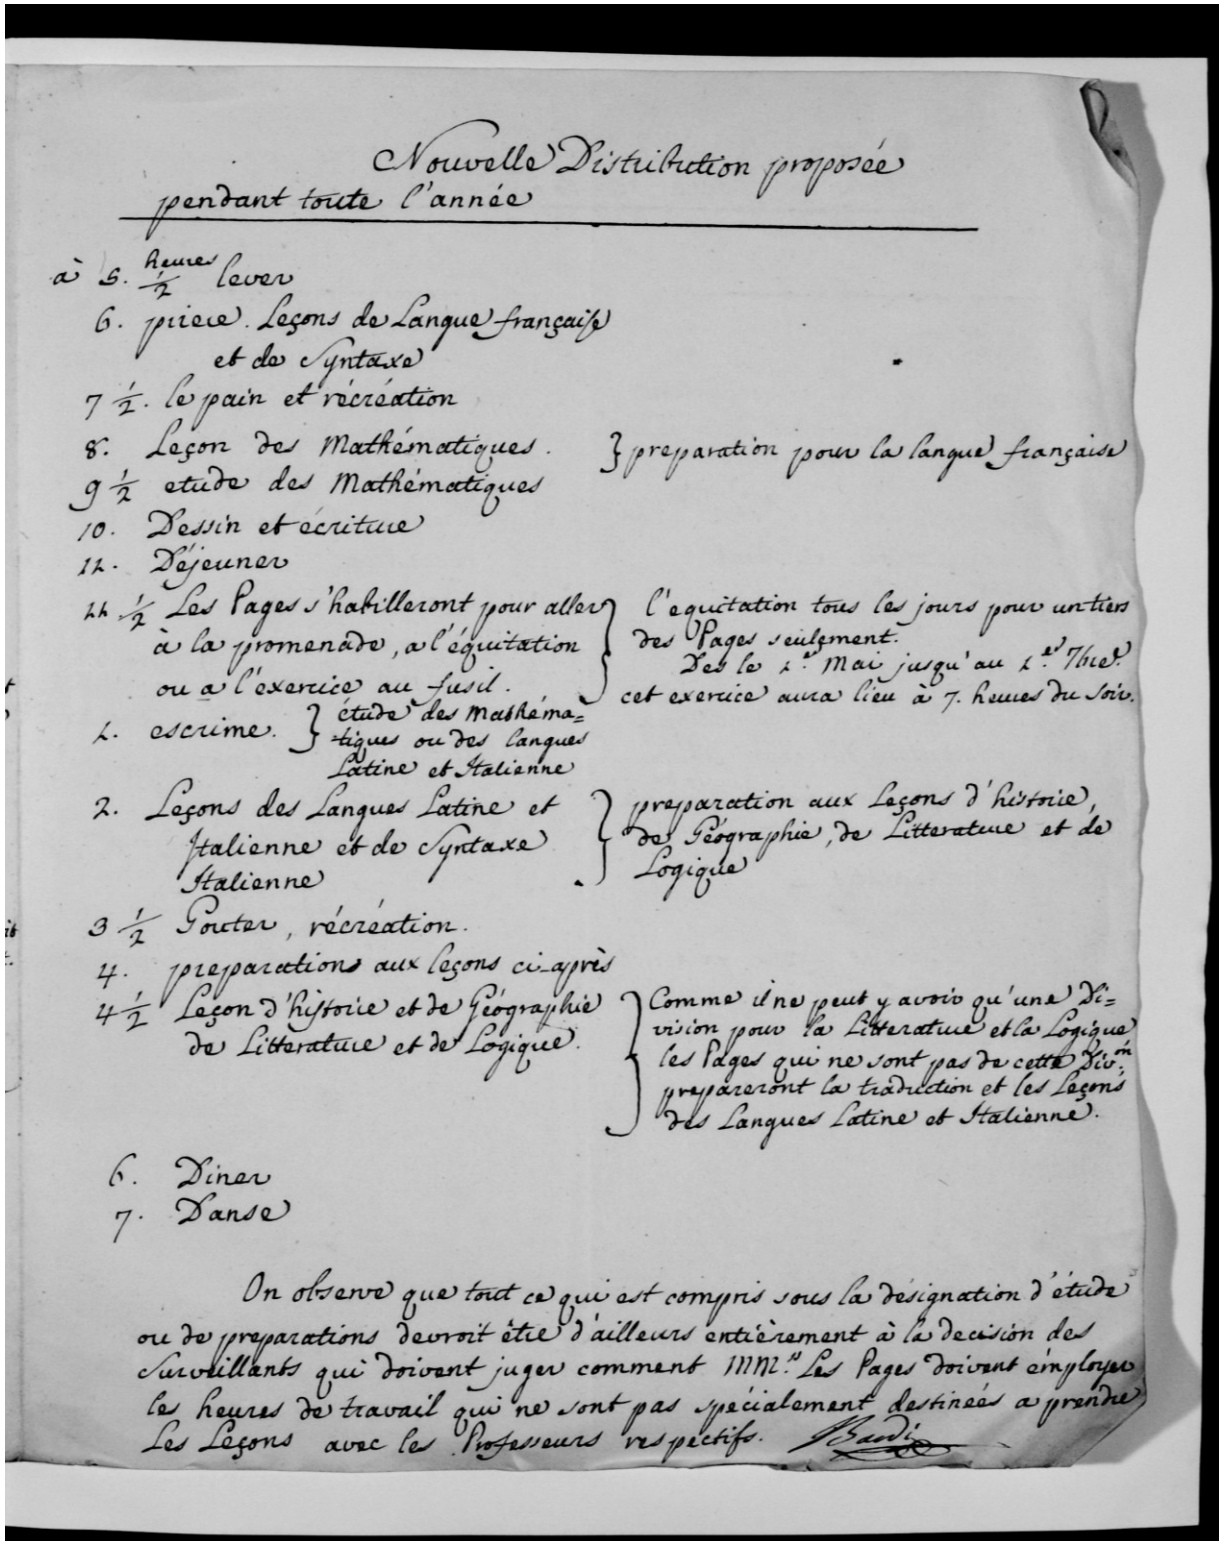 Nouvelle Distribution proposée
pendant toute l'année
à 5. heures ½ lever
6. priere. Leçons de Langue française
et de Syntaxe
7 ½. le pain et récréation
8. Leçon des Mathématiques. } preparation pour la langue française
9 ½ etude des Mathématiques
10. Dessin et écriture
11. Déjeuner
11 ½ Les Pages s'habilleront pour aller
à la promenade, a l'équitation
ou a l'exercice au fusil.
} l'equitation tous les jours pour un tiers
des Pages seulement.
Des le 1.er Mai jusqu'au 1.er 7bre.
cet exercice aura lieu à 7. heures du soir.
1. escrime. } étude des Mathéma=
-tiques ou des langues
Latine et Italienne
2. Leçons des Langues Latine et
Italienne et de Syntaxe
Italienne
} preparation aux Leçons d'histoire,
de Géographie, de Litterature et de
Logique
3 ½ Gouter, récréation.
4. preparations aux leçons ci-après
4 ½ Leçon d'histoire et de Géographie
de Litterature et de Logique.
} Comme il ne peut y avoir qu'une Di=
vision pour la Litterature et la Logique
les Pages qui ne sont pas de cette Div.on
prepareront la traduction et les Leçons
des Langues Latine et Italienne.
6. Diner
7. Danse
On observe que tout ce qui est compris sous la désignation d'étude
ou de preparations devroit être d'ailleurs entièrement à la decision des
Surveillants qui doivent juger comment MM.s Les Pages doivent émployer
les heures de travail qui ne sont pas spécialement destinées a prendre
Les Leçons avec les Professeurs respectifs. Bardi